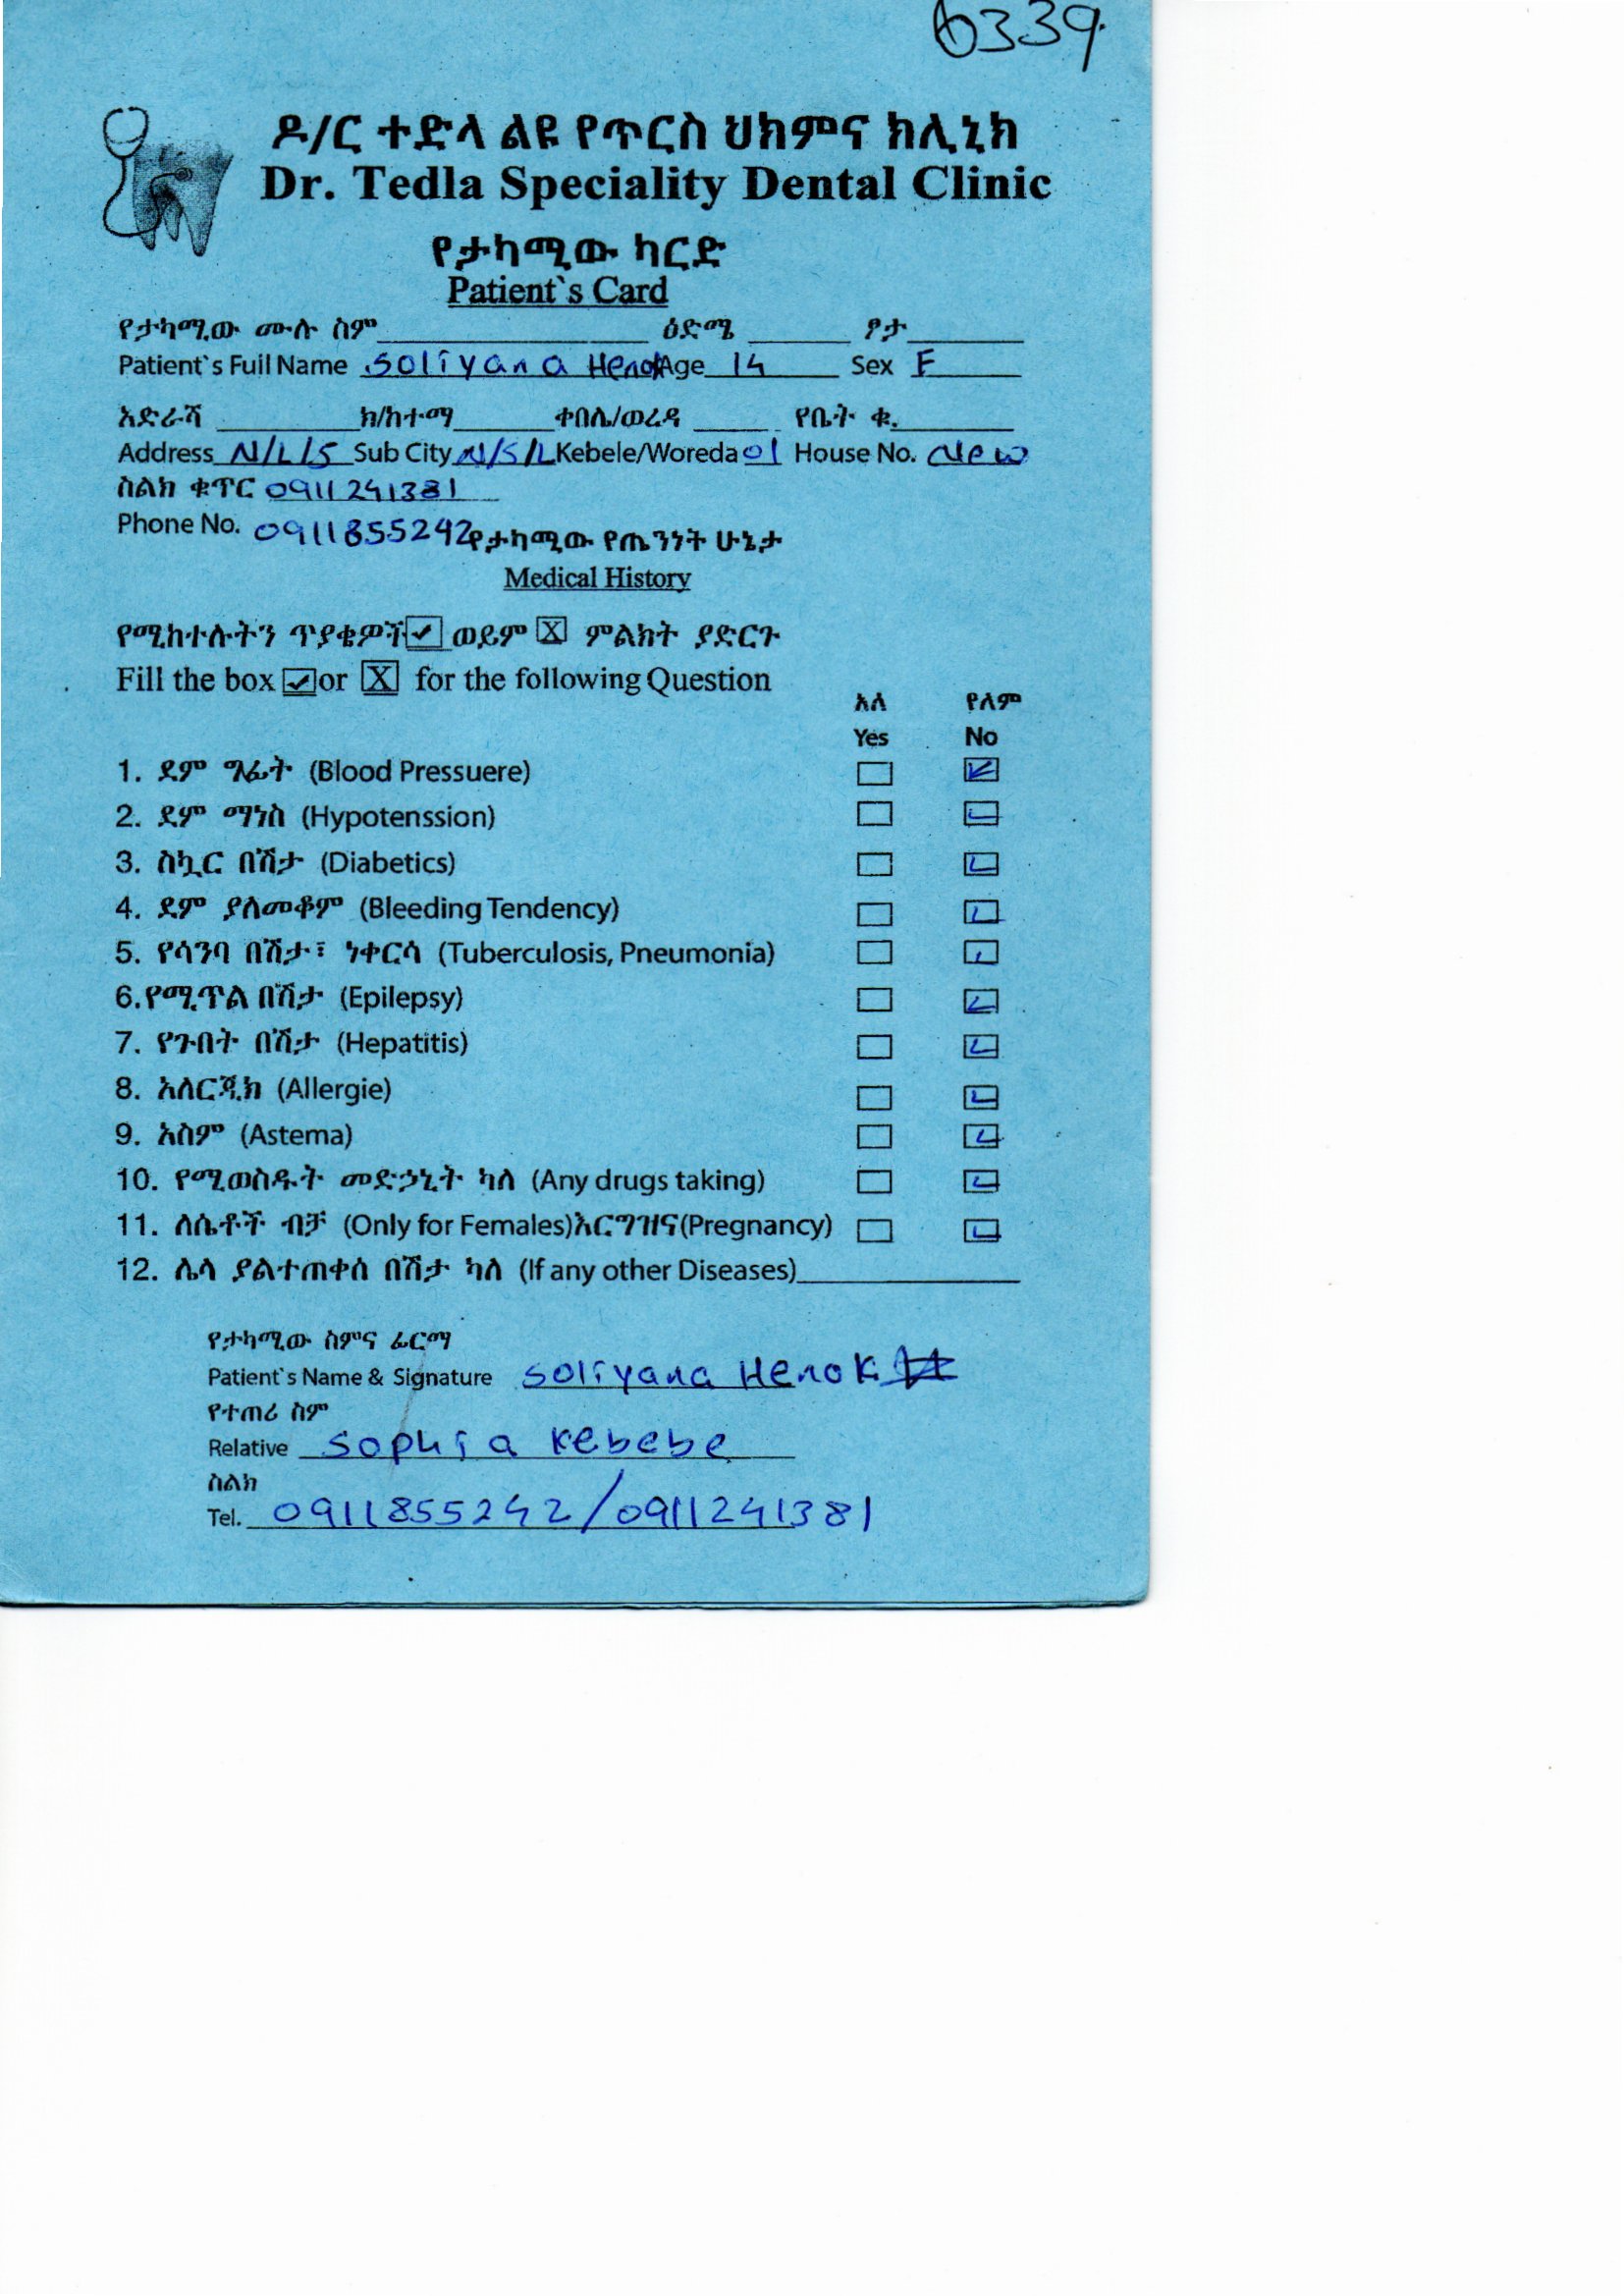 6339
ዶ/ር ተድላ ልዩ የጥርስ ህክምና ክሊኒክ
Dr. Tedla Speciality Dental Clinic
የታካሚው ካርድ
Patient`s Card
የታካሚው ሙሉ ስም ዕድሜ ፆታ
Patient`s Full Name Soliyana Henok Age 14 Sex F
አድራሻ ክ/ከተማ ቀበሌ/ወረዳ የቤት ቁ.
Address N/L/S Sub City N/S/L Kebele/Woreda 01 House No. New
ስልክ ቁጥር 0911 241381
Phone No. 0911855242 የታካሚው የጤንነት ሁኔታ
Medical History
የሚከተሉትን ጥያቄዎች ✓ ወይም X ምልክት ያድርጉ
Fill the box ✓ or X for the following Question
አለ የለም
Yes No
1. ደም ግፊት (Blood Pressuere)
2. ደም ማነስ (Hypotenssion)
3. ስኳር በሽታ (Diabetics)
4. ደም ያለመቆም (Bleeding Tendency)
5. የሳንባ በሽታ፣ ነቀርሳ (Tuberculosis, Pneumonia)
6. የሚጥል በሽታ (Epilepsy)
7. የጉበት በሽታ (Hepatitis)
8. አለርጂክ (Allergie)
9. አስም (Astema)
10. የሚወስዱት መድኃኒት ካለ (Any drugs taking)
11. ለሴቶች ብቻ (Only for Females) እርግዝና (Pregnancy)
12. ሌላ ያልተጠቀሰ በሽታ ካለ (If any other Diseases)
የታካሚው ስምና ፊርማ
Patient`s Name & Signature Soliyana Henok
የተጠሪ ስም
Relative Sophia Kebebe
ስልክ
Tel. 0911855242/0911241381